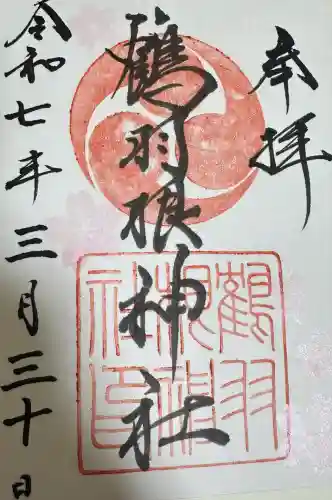 奉拝
鶴羽根神社
鶴羽根神社印
令和七年三月三十日